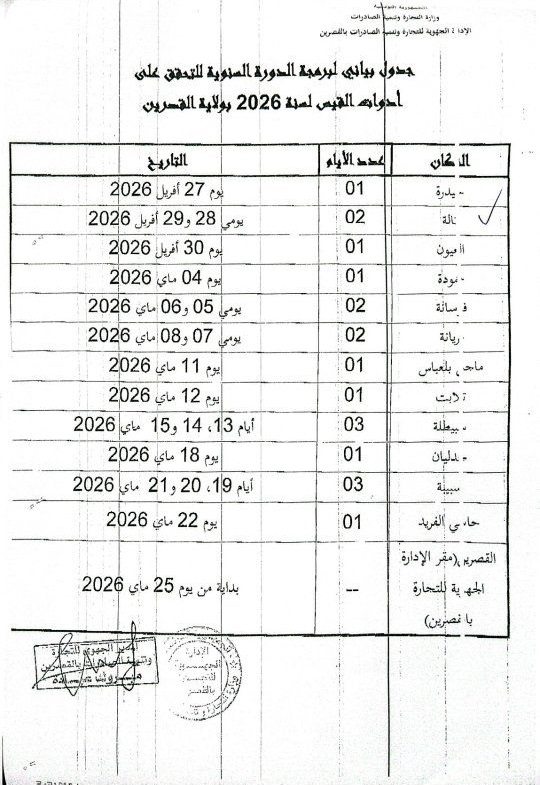 الجمهورية التونسية
وزارة التجارة وتنمية الصادرات
الإدارة الجهوية للتجارة وتنمية الصادرات بالقصرين
جدول بياني لبرمجة الدورة السنوية للتحقق على
أدوات القيس لسنة 2026 بولاية القصرين
المكان عدد الأيام التاريخ
حيدرة 01 يوم 27 أفريل 2026
تالة 02 يومي 28 و29 أفريل 2026
العيون 01 يوم 30 أفريل 2026
01 يوم 04 ماي 2026
فوسانة 02 يومي 05 و06 ماي 2026
فريانة 02 يومي 07 و08 ماي 2026
ماجل بلعباس 01 يوم 11 ماي 2026
تلابت 01 يوم 12 ماي 2026
سبيطلة 03 أيام 13، 14 و15 ماي 2026
جدليان 01 يوم 18 ماي 2026
سبيبة 03 أيام 19، 20 و21 ماي 2026
حاسي الفريد 01 يوم 22 ماي 2026
القصرين(مقر الإدارة
الجهوية للتجارة -- بداية من يوم 25 ماي 2026
بالقصرين)
المدير الجهوي للتجارة
وتنمية الصادرات بالقصرين
الإدارة
الجهوية
للتجارة